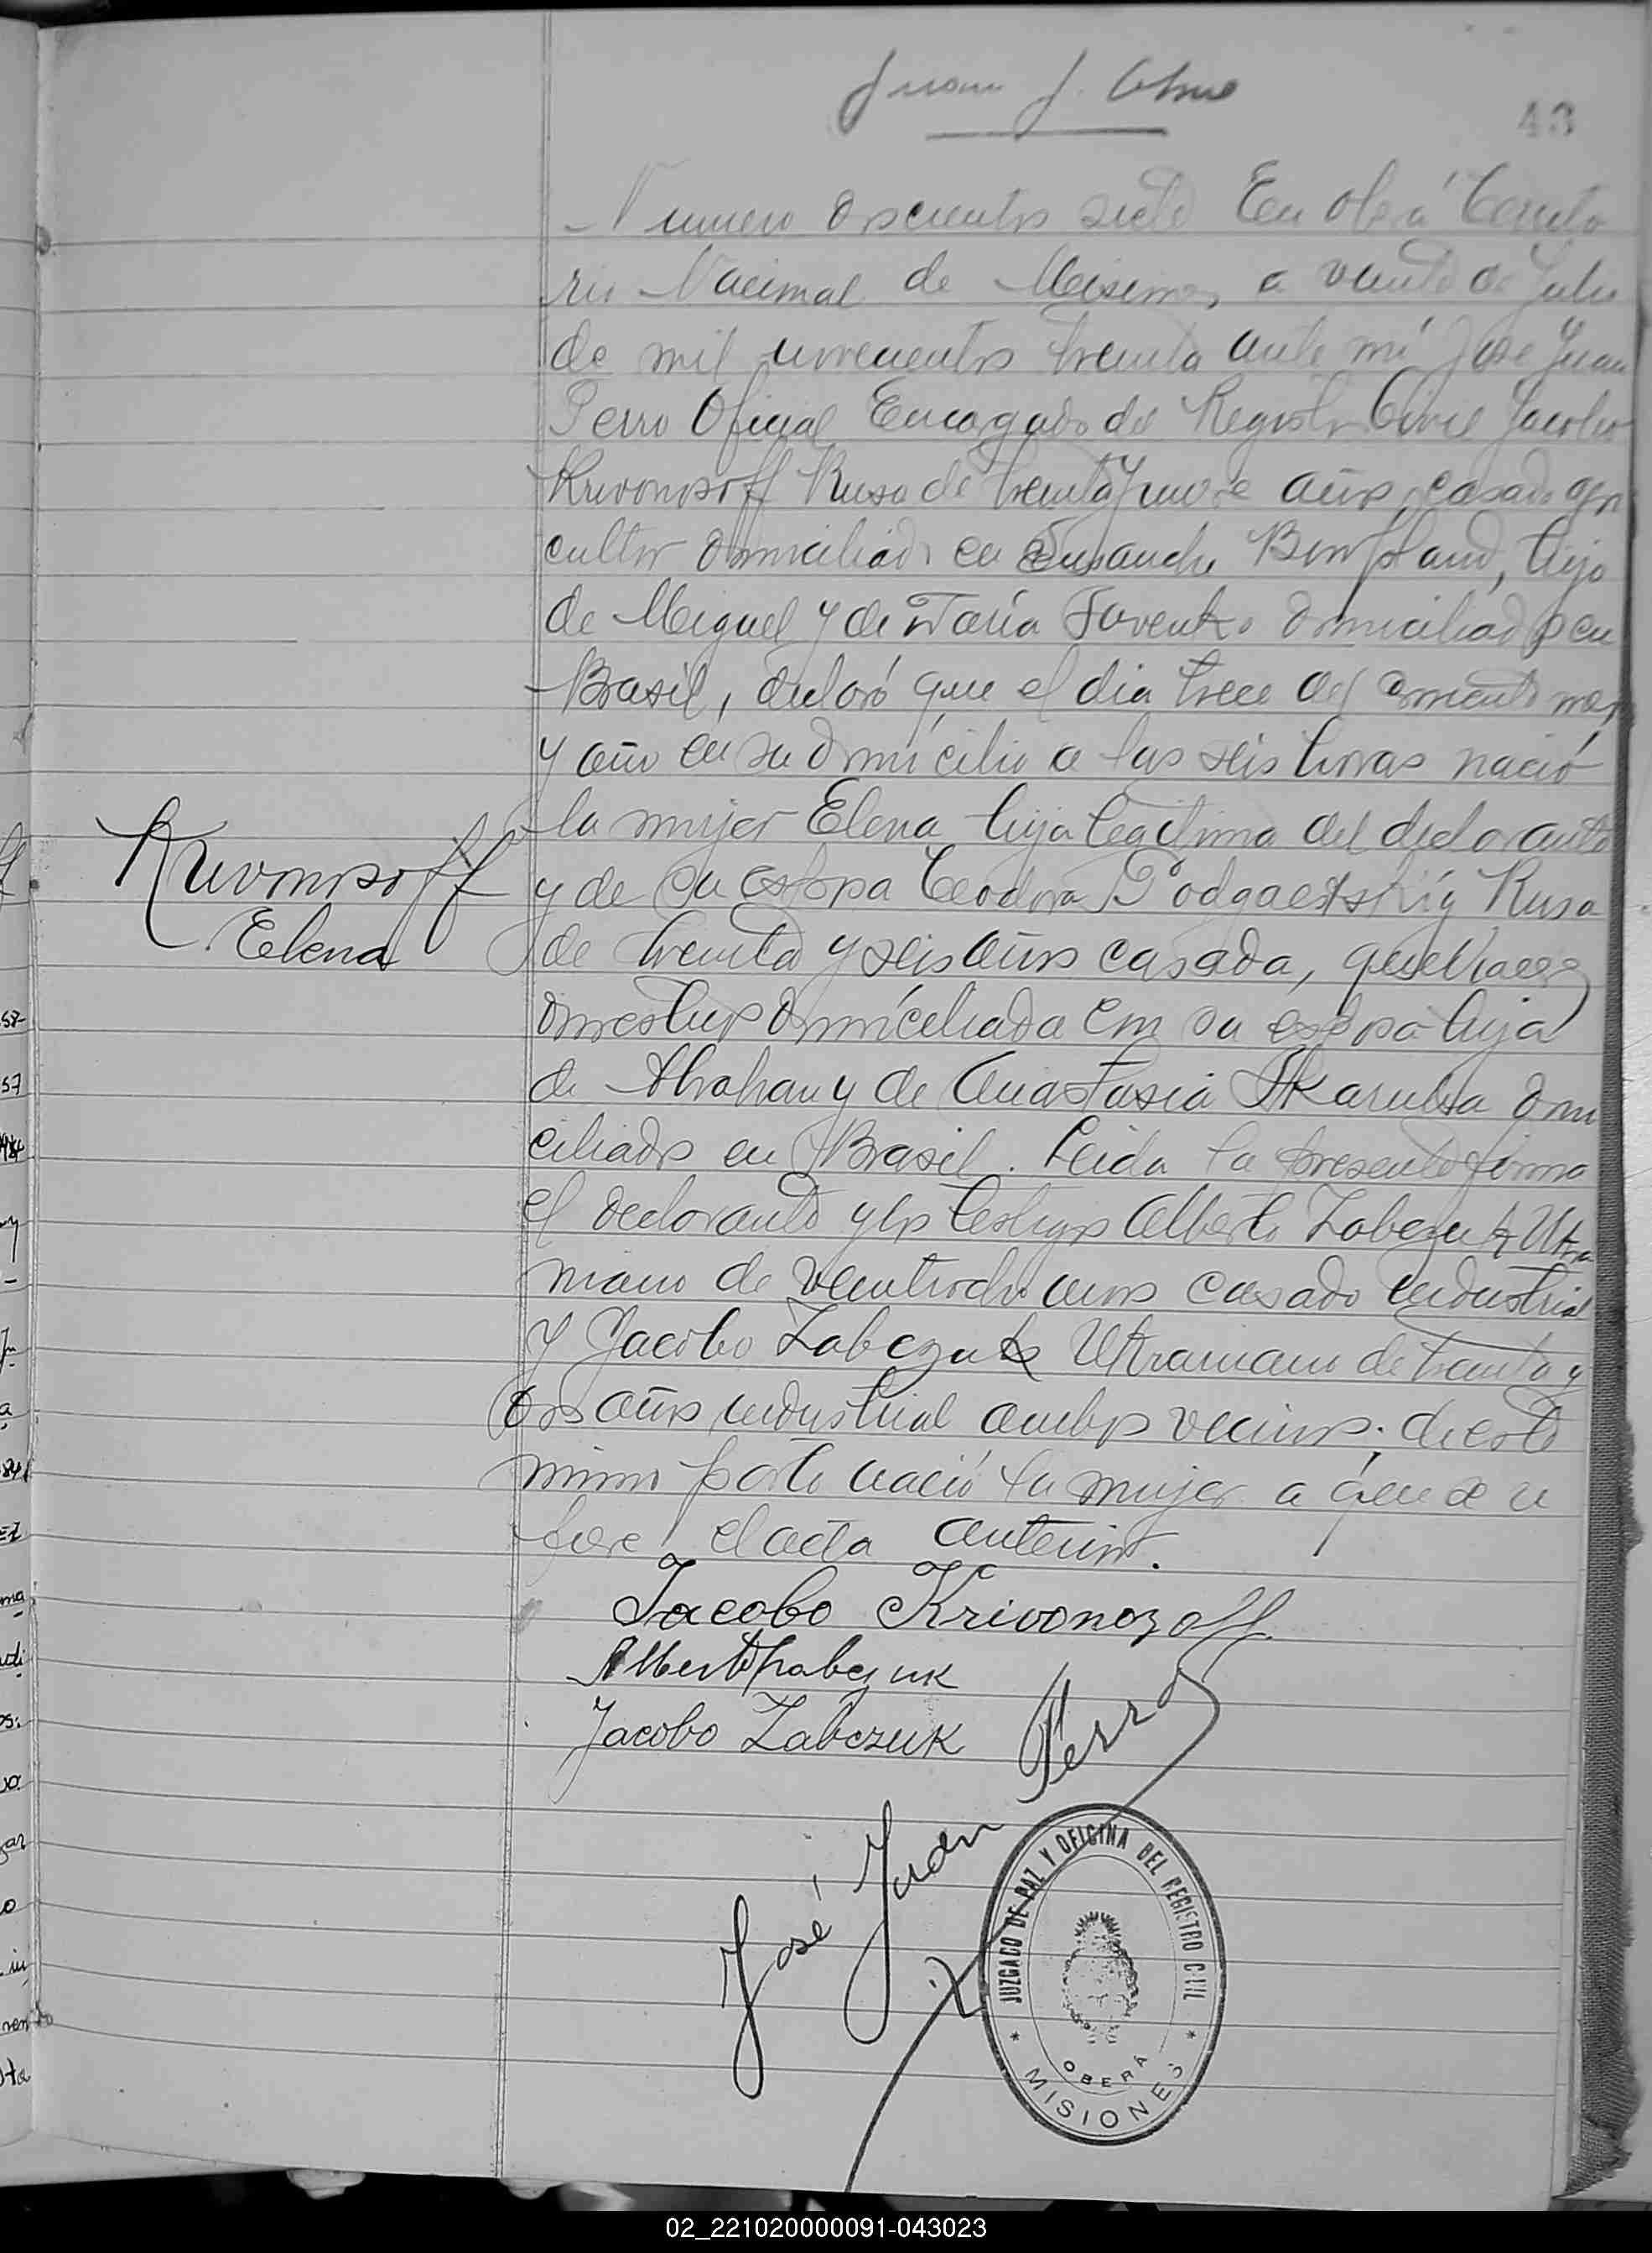 Juan J.
43
Numero doscientos siete En Oberá Territo
rio Nacional de Misiones, a veinte de Julio
de mil novecientos treinta ante mi José Juan
Perro Oficial Encargado del Registro Civil Jacobo
Krivonosoff Ruso de treinta y nueve años, casado agri
cultor domiciliado en Ensanche Bonpland, hijo
de Miguel y de María domiciliados en
Brasil, declaró que el dia trece del corriente mes
y año en su domicilio a las seis horas nació
la mujer Elena hija legitima del declarante
y de su esposa Teodora Podgaetskig Rusa
de treinta y seis años casada, quehaceres
domesticos domiciliada con su esposo hija
de Abrahan y de Anastasia domi
ciliados en Brasil. Leida la presente firma
el declarante y los testigos Alberto Zabczuk Ukra
niano de veintiocho años casado industrial
y Jacobo Zabczuk Ukraniano de treinta y
dos años industrial ambos vecinos. de este
mismo parto nació la mujer a que se re
fiere el acta anterior.
Krivonosoff
Elena
Jacobo Krivonozoff
Alberto Zabczuk
Jacobo Zabczuk
José Juan Perro
JUZGADO DE PAZ Y OFICINA DEL REGISTRO CIVIL
OBERÁ
* MISIONES *
02_221020000091-043023